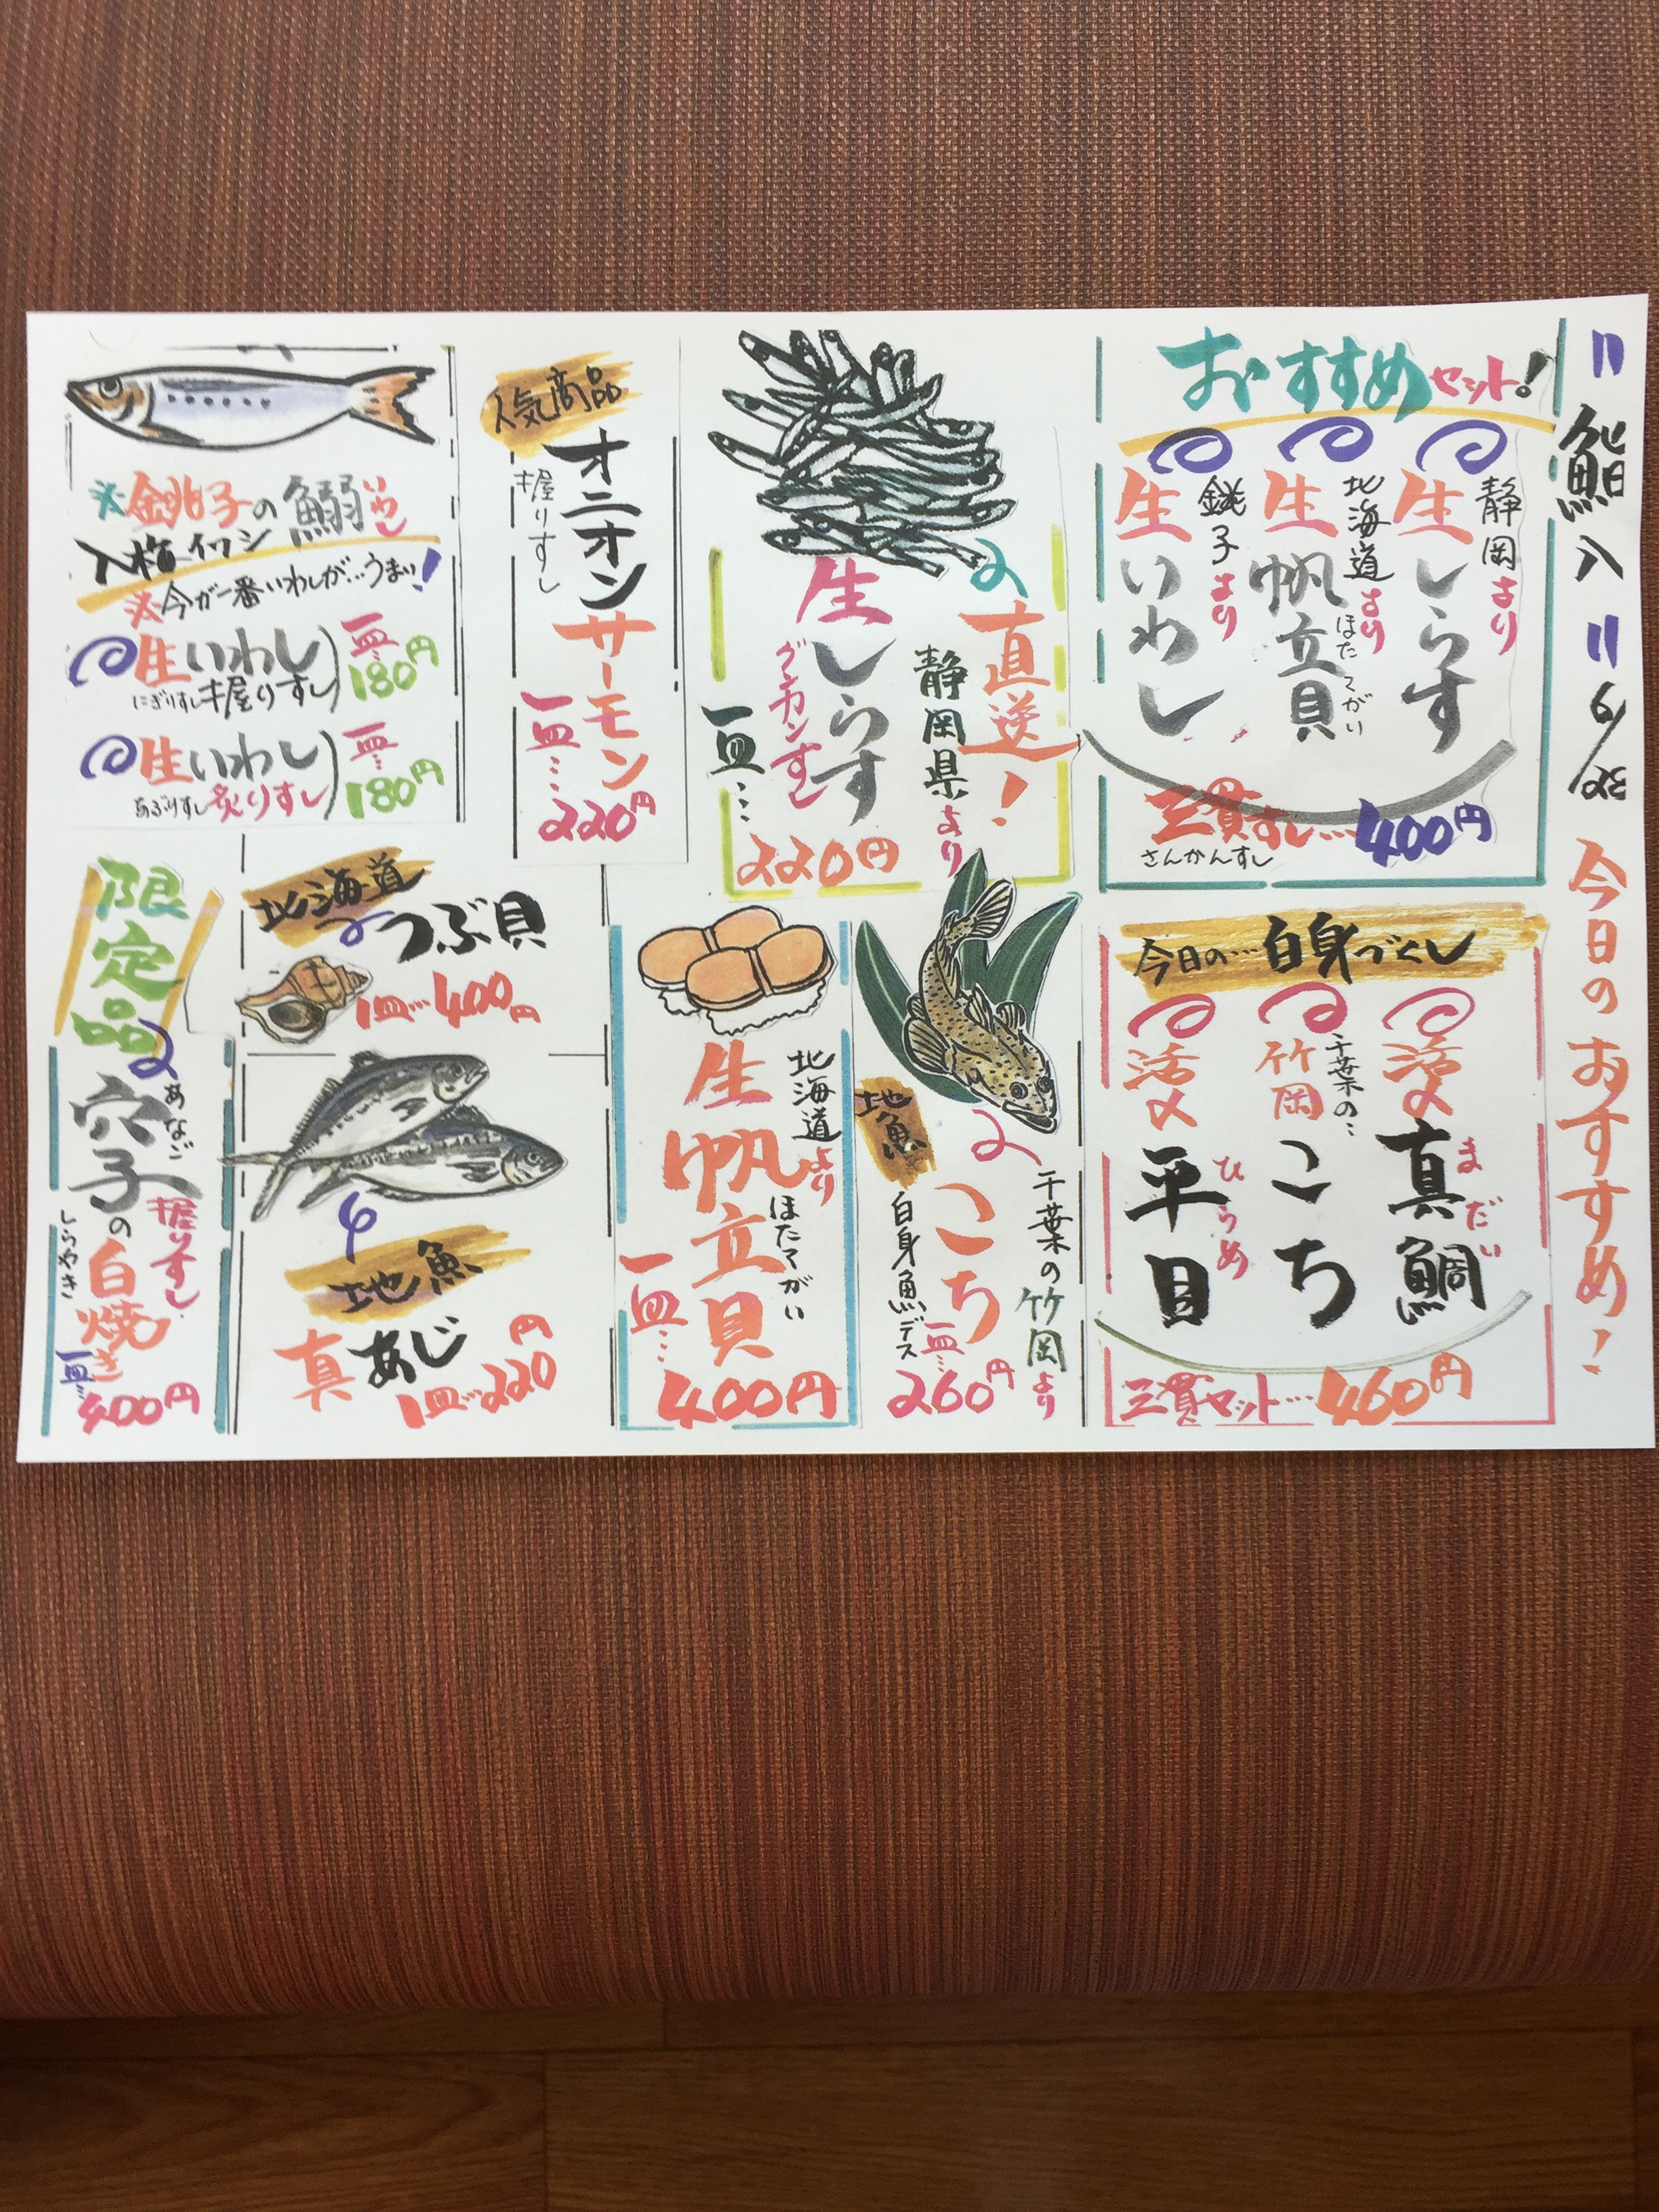 〃鮨八〃 6/28 今日のおすすめ！
おすすめセット！
静岡より
生しらす
北海道より
生帆立貝
ほたてがい
銚子より
生いわし
三貫すし…400円
さんかんすし
今日の…白身づくし
活〆真鯛
まだい
千葉の…
竹岡こち
活〆平目
ひらめ
三貫セット…460円
直送！
静岡県より
生しらす
グンカンすし
一皿…220円
地魚
千葉の竹岡より
こち
白身魚デス
一皿…260円
北海道より
生帆立貝
ほたてがい
一皿…400円
人気商品
オニオンサーモン
握りすし
一皿…220円
※銚子の鰯
いわし
入梅イワシ
※今が一番いわしが…うまい！
生いわし
にぎりすし
握りすし
一皿…180円
生いわし
あぶりすし
炙りすし
一皿…180円
北海道
つぶ貝
1皿…400円
地魚
真あじ
1皿…220円
限定品
穴子の白焼き
あなご
しらやき
握りすし
一皿…400円